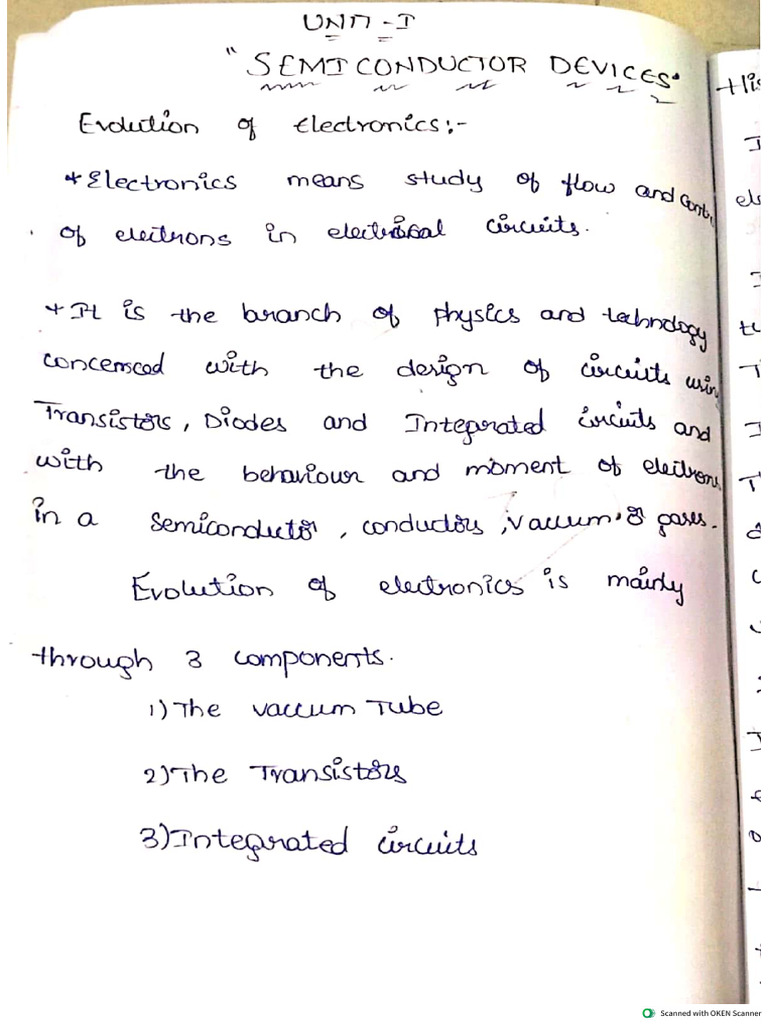 UNIT - I
"SEMICONDUCTOR DEVICES"
Evolution of Electronics:-
* Electronics means study of flow and
of electrons in electrical circuits.
* It is the branch of physics and technology
concerned with the design of circuits using
Transistors, Diodes and Integrated circuits and
with the behaviour and moment of electrons
in a semiconductor, conductors, vaccum, & gases.
Evolution of electronics is mainly
through 3 components.
1) The vaccum Tube
2) The Transistors
3) Integrated circuits
Scanned with OKEN Scanner